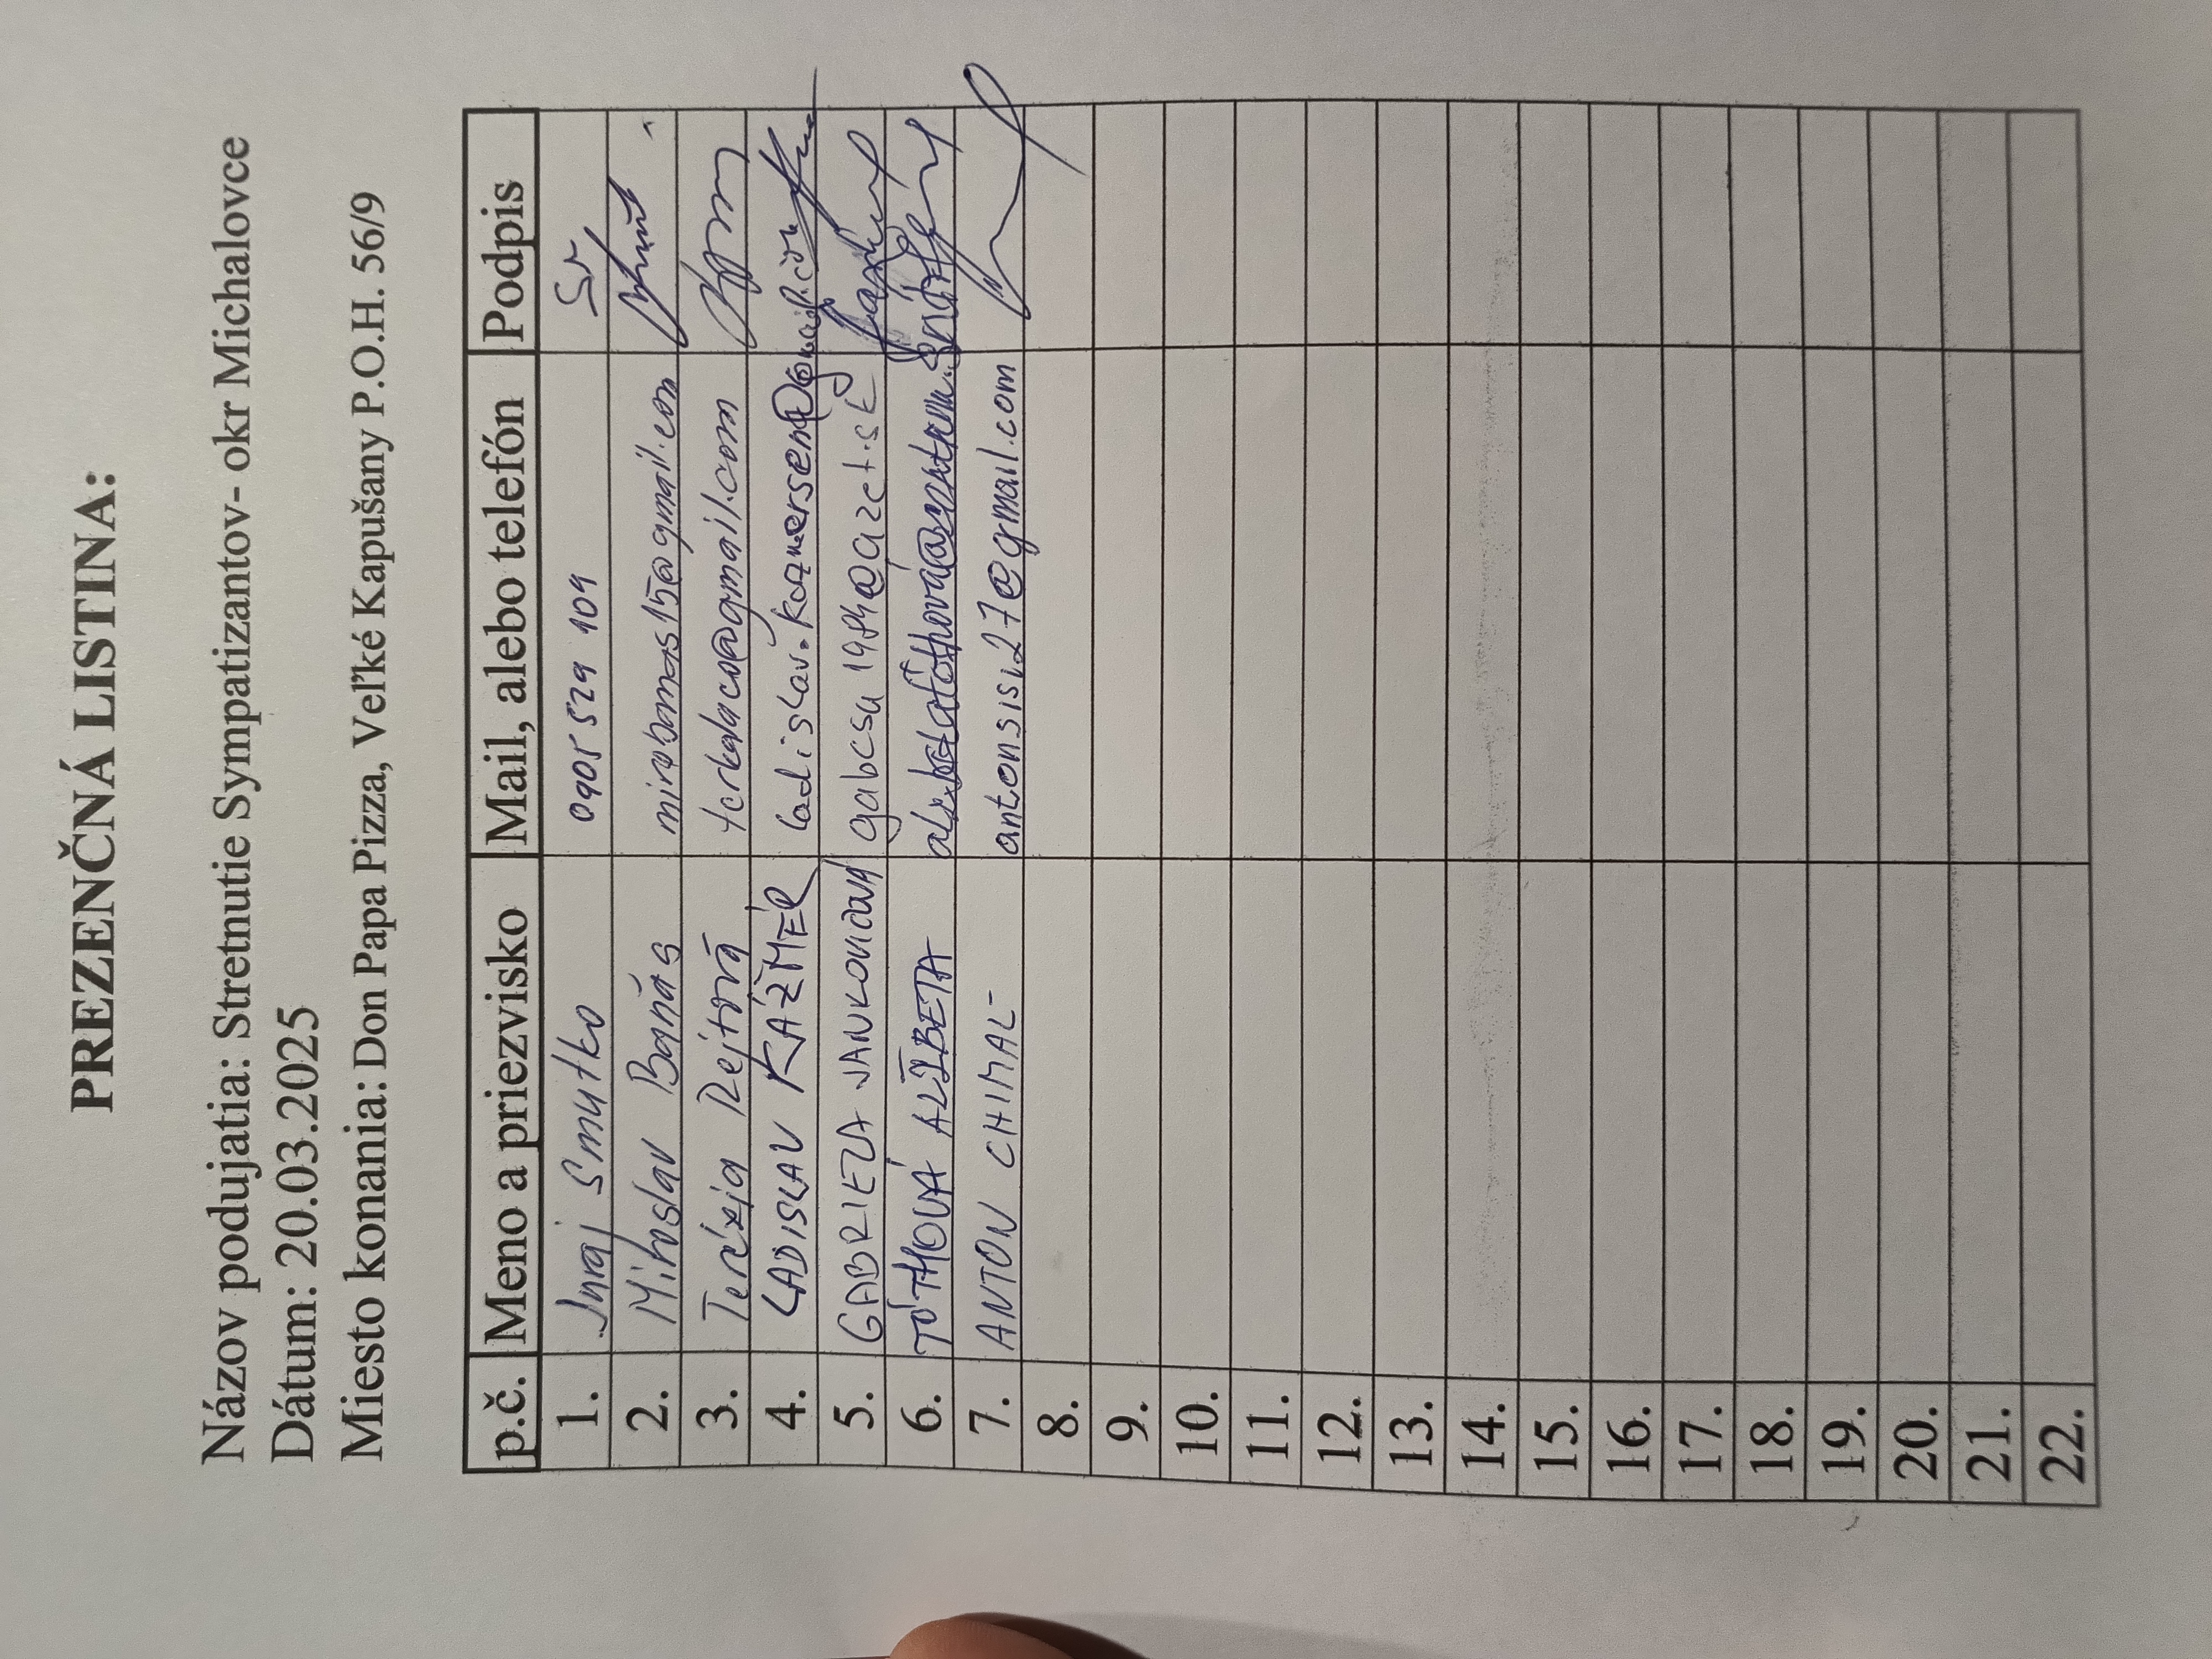 PREZENČNÁ LISTINA:
Názov podujatia: Stretnutie Sympatizantov- okr Michalovce
Dátum: 20.03.2025
Miesto konania: Don Papa Pizza, Veľké Kapušany P.O.H. 56/9
p.č. Meno a priezvisko Mail, alebo telefón Podpis
1. Juraj Smutko 0905 529 109
2. Miroslav Banás mirobanas15@gmail.com
3. Terézia Rejtová terkalaco@gmail.com
4. LADISLAV KÁŽMÉR ladislav.kazmersen@gmail.com
5. GABRIELA JANKOVIČOVÁ gabcsa1984@azet.sk
6. TÓTHOVÁ ALŽBETA
7. ANTON CHIMAL antonsisi27@gmail.com
8.
9.
10.
11.
12.
13.
14.
15.
16.
17.
18.
19.
20.
21.
22.